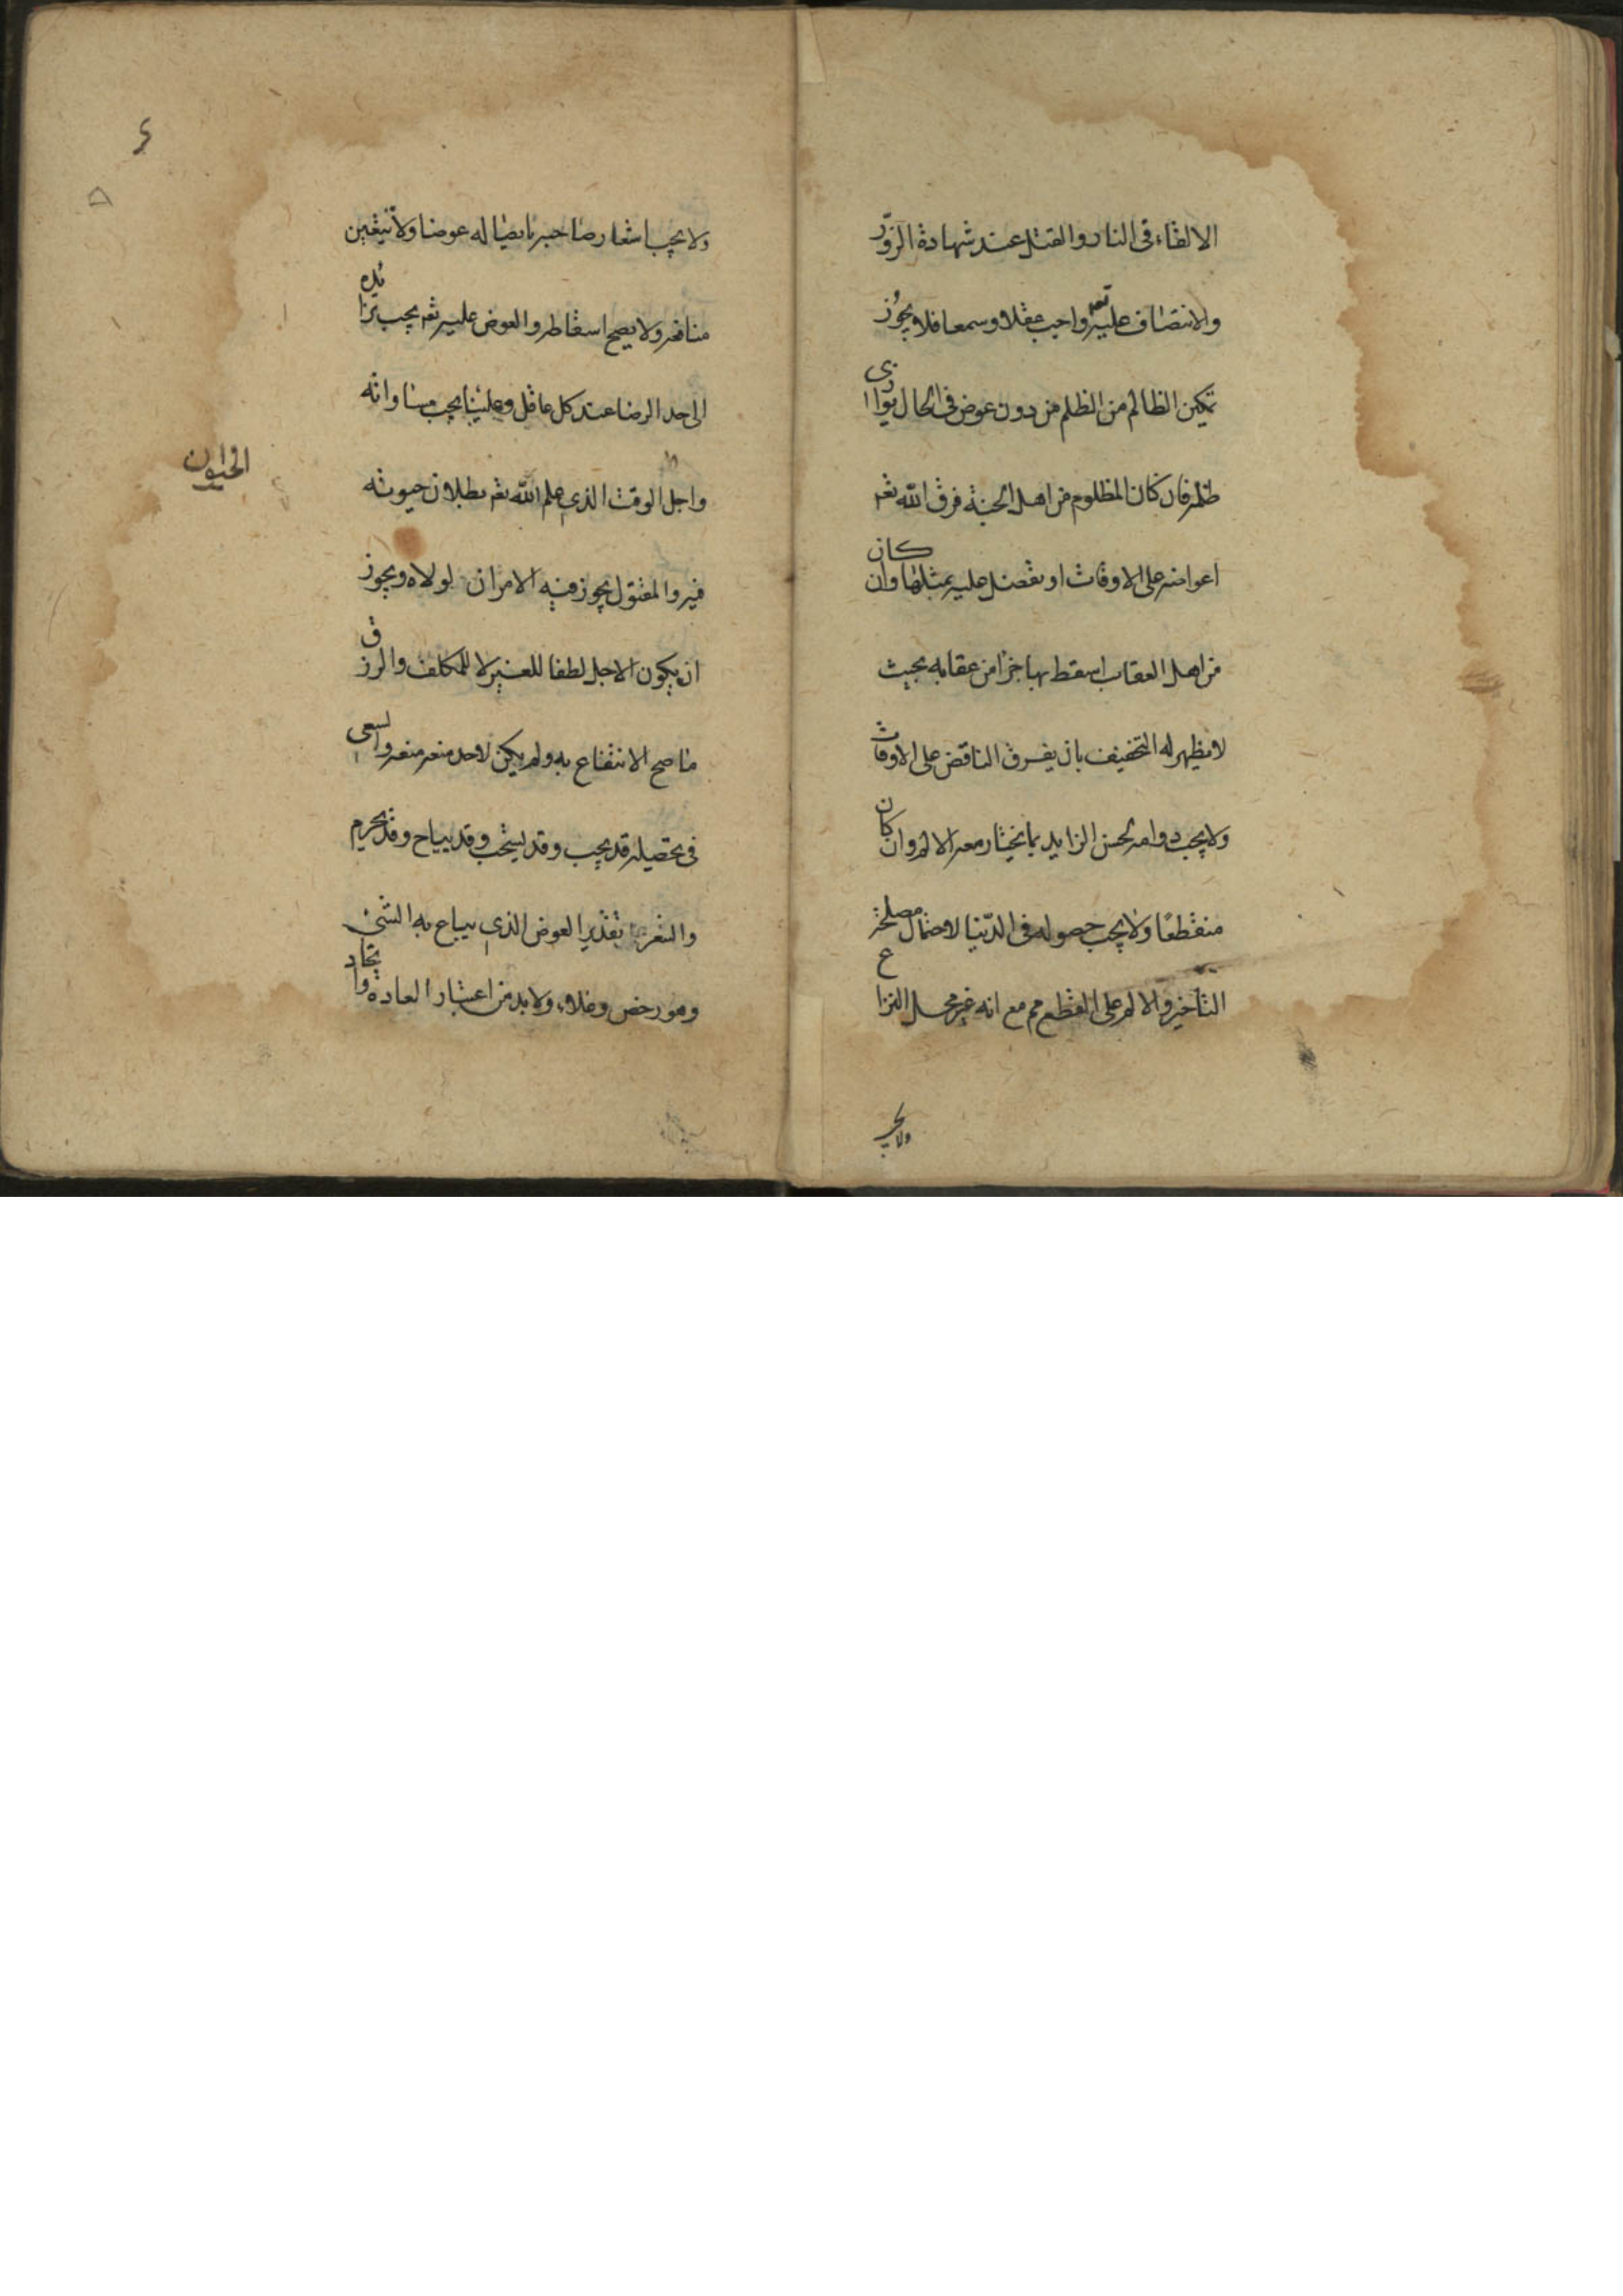 الالقاء فى النار والقتل عند شهادة الزوّر
والانتصاف عليه تعم واجب عقلا وسمعا فلا يجوز
تمكين الظالم من الظلم من دون عوض فى الحال يوازى
ظلمه فان كان المظلوم من اهل الجنة فرق الله تعم
اعواضه على الاوقات او تفضل عليه بمثلها وان كان
من اهل العقاب اسقط بها جزا من عقابه بحيث
لا يظهر له التخفيف بان يفرق الناقص على الاوقات
ولا يجب دوامه لحسن الزايد بما يختار معه الالم وان كان
منقطعا ولا يجب حصوله فى الدّنيا لاحتمال مصلحة
التاخير والالم على القطع مم مع انه غير محل النزاع
ولا يجب
ولا يجب اشعار صاحبه بايصاله عوضا ولا تيعّين
منافعه ولا يصح اسقاطه والعوض عليه تعم يجب تزايده
الى حد الرضا عند كل عاقل وعلينا يجب مساواته
واجل الوقت الذى علم الله تعم بطلان حيوته
الحيوان
فيه والمقتول يجوز فيه الامران لولاه ويجوز
ان يكون الاجل لطفا للغير لا للمكلف والرزق
ما صح الانتفاع به ولم يكن لاحد منعه منه والسعى
فى تحصيله قد يجب وقد يستحب وقد يباح وقد يحرم
والسعر تقدير العوض الذى يباع به الشئ
وهو رخص وغلاء ولا بد من اعتبار العادة واتحاد